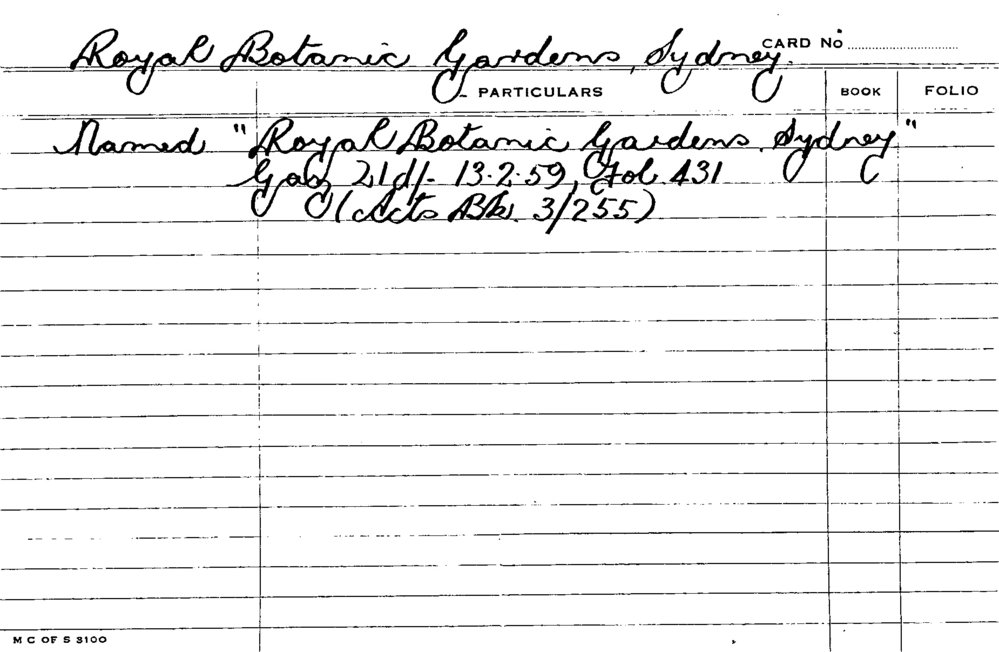 Royal Botanic Gardens, Sydney.
CARD No
PARTICULARS BOOK FOLIO
Named "Royal Botanic Gardens. Sydney"
Gaz 21 d/- 13.2.59, Fol. 431
(Acts Bk. 3/255)
M C OF S 3100